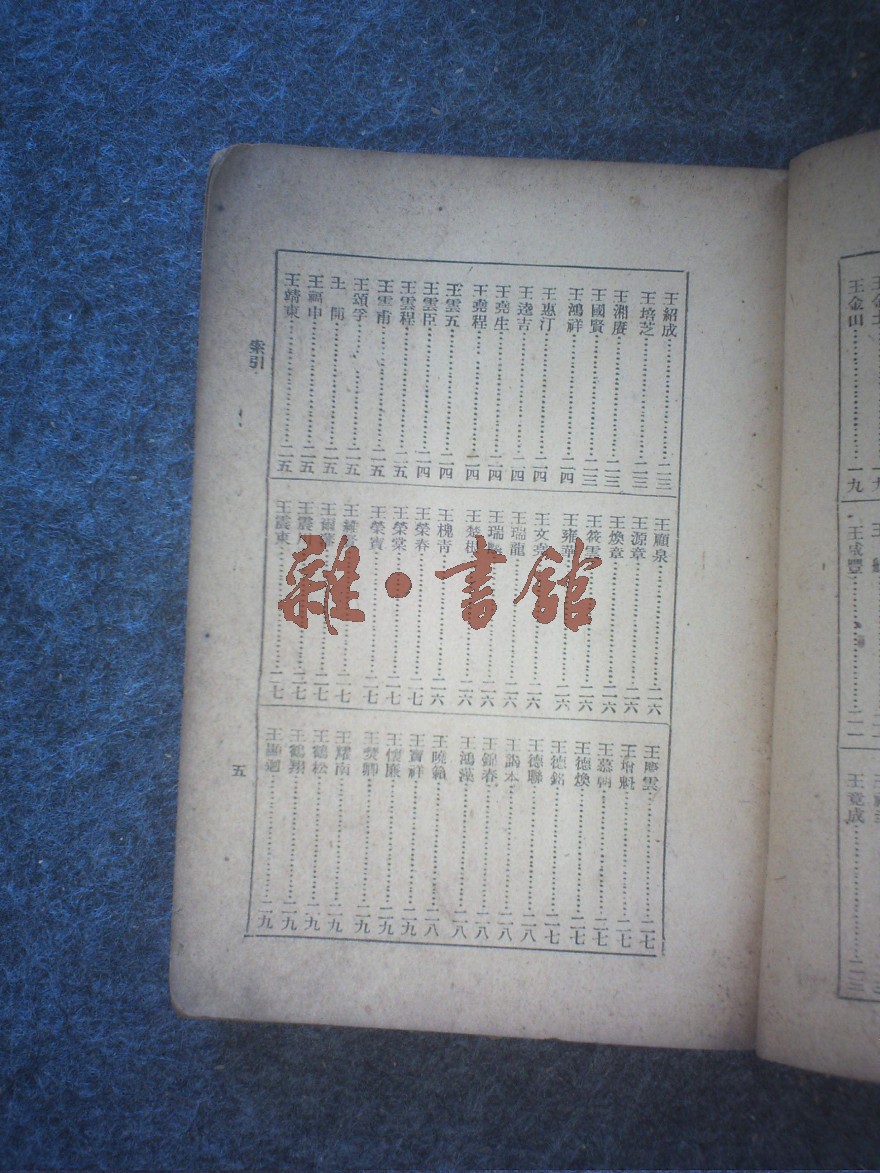 王紹成……二三
王培芝……二三
王湘賡……二三
王國賢……二三
王鴻祥……二四
王惠汀……二四
王逵吉……二四
王堯生……二四
王堯程……二四
王雲五……二四
王雲臣……二四
王雲程……二五
王雲甫……二五
王頌孚……二五
王開……二五
王福申……二五
王靖東……二五
王願泉……二六
王源章……二六
王煥章……二六
王筱雲……二六
王雍華……二六
王文……二六
王瑞龍……二六
王瑞……二六
王楚……二六
王槐青……二六
王榮春……二七
王榮棠……二七
王榮寶……二七
王維……二七
王爾……二七
王震……二七
王震東……二七
王慶雲……二七
王增魁……二七
王慕朝……二七
王德煥……二七
王德銘……二七
王德聯……二八
王本……二八
王錦春……二八
王鴻漢……二八
王曉籟……二八
王寶祥……二九
王懷廉……二九
王贊卿……二九
王耀南……二九
王鶴松……二九
王鶴翔……二九
王顯迴……二九
索引
五
雜·書館
王金山……一九
王咸豐……二一
王竟成……二三